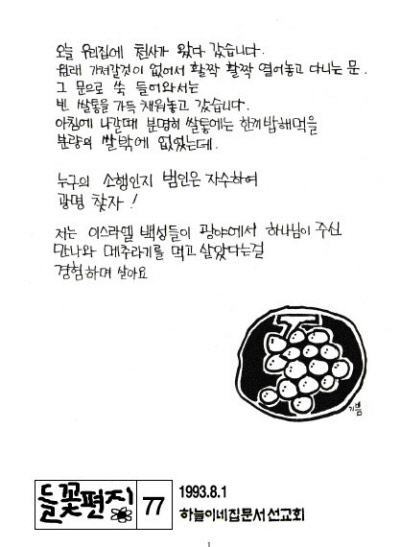 오늘 우리집에 천사가 왔다 갔습니다.
원래 가져갈것이 없어서 활짝 활짝 열어놓고 다니는 문.
그 문으로 쑥 들어와서는
빈 쌀통을 가득 채워놓고 갔습니다.
아침에 나갈때 분명히 쌀통에는 한끼밥해먹을
분량의 쌀밖에 없었는데.
누구의 소행인지 범인은 자수하여
광명 찾자!
저는 이스라엘 백성들이 광야에서 하나님이 주신
만나와 메추라기를 먹고 살았다는걸
경험하며 살아요
기쁨
들꽃편지
77
1993.8.1
하늘이네집문서선교회
1